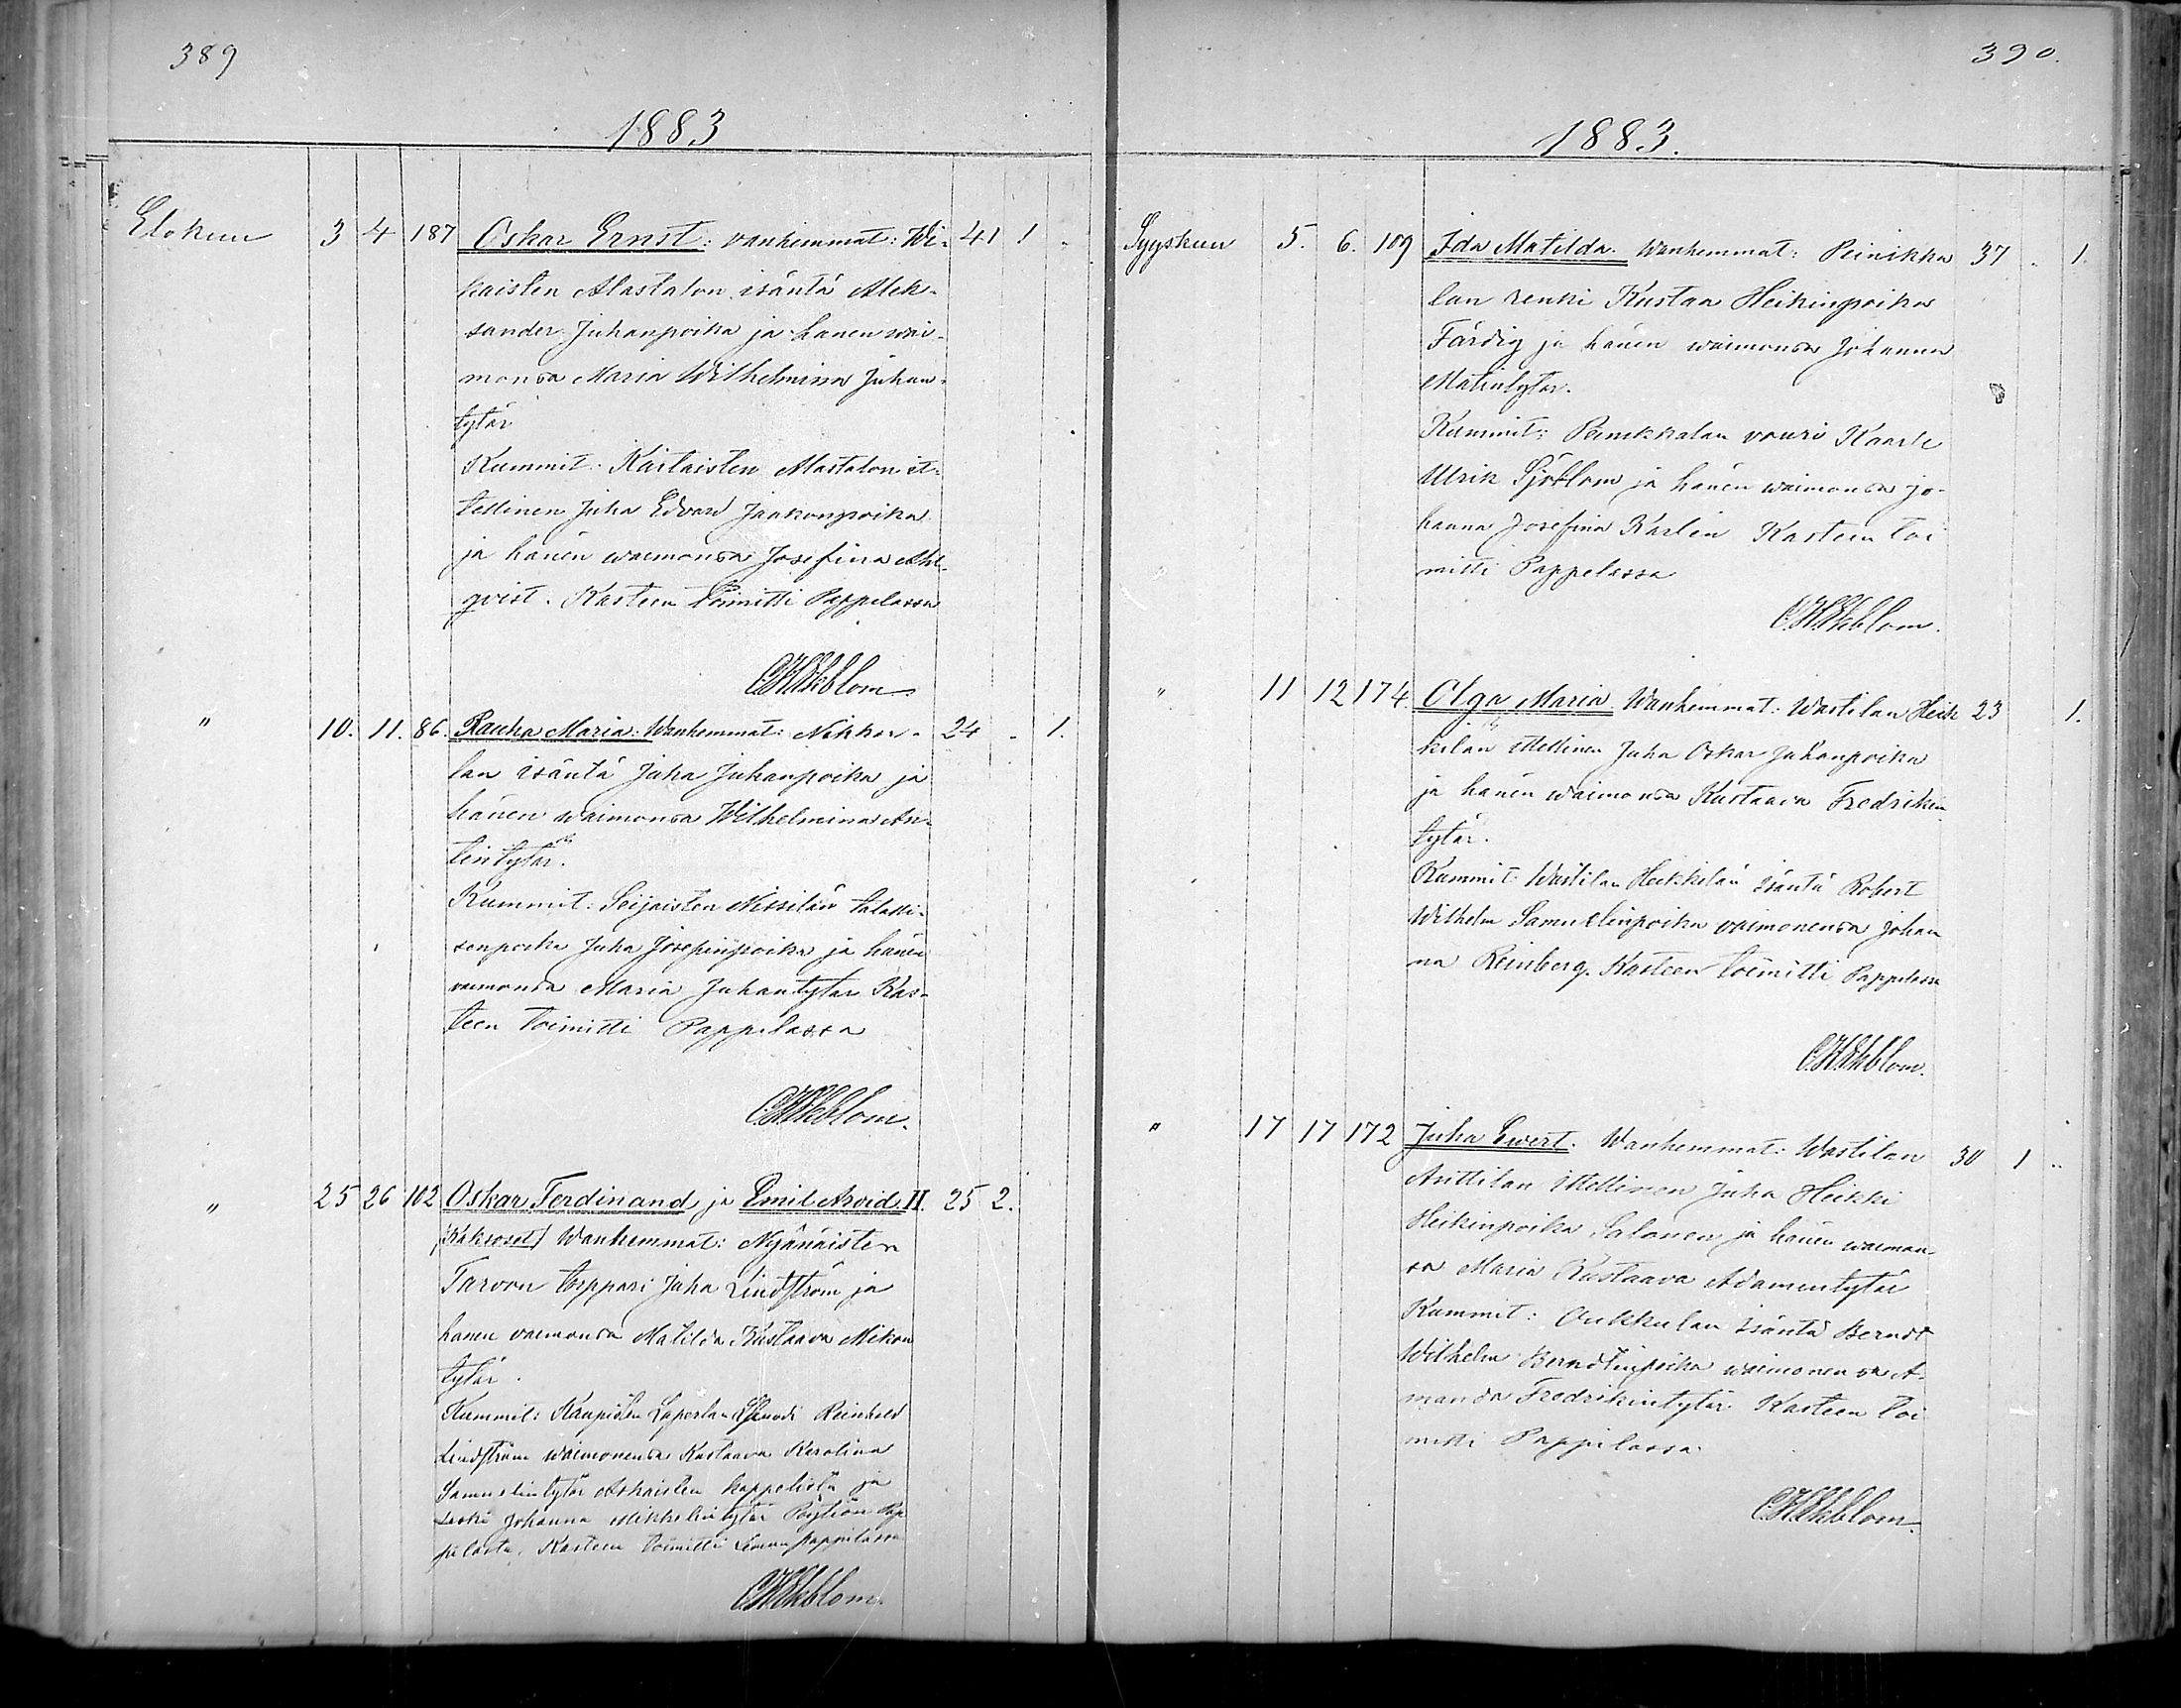 389
1883
Elokuu 3 4 187 Oskar Ernst: vanhemmat: Wi- 41 1 "
kaisten Alastalon isäntä Alek-
sander Juhanpoika ja hänen wai-
monsa Maria Wilhelmina Juhan-
tytär
Kummit: Kärlaisten Alastalon it-
tellinen Juha Edvard Jaakonpoika
ja hänen waimonsa Josefina Ahl-
qvist. Kasteen toimitti Pappilassa
C.H. Ekblom
" 10. 11. 86. Rauha Maria: Wanhemmat: Nikka- 24 " 1.
lan isäntä Juha Juhanpoika ja
hänen waimonsa Wilhelmina An-
tintytär.
Kummit: Seijaisten Nissilän talolli-
senpoika Juha Josepinpoika ja hänen
waimonsa Maria Juhantytär Kas-
teen toimitti Pappilassa
C.H. Ekblom.
" 25 26 102 Oskar Ferdinand ja Emil Arvid. II. 25 2.
(Kaksoset) Wanhemmat: Nyänäisten
Tarvon torppari Juha Lindström ja
hänen vaimonsa Matilda Kustaava Mikon
tytär.
Kummit: Reinhold
Lindström waimonensa Kustaava Karolina
Samuelintytär Askaisten kappelista ja
Leski Johanna Mikkelintytär Pöytiön Pap
pilasta. Kasteen toimitti Lemun pappilassa
C.H. Ekblom.
390.
1883.
Syyskuu 5. 6. 109 Ida Matilda. Wanhemmat: Peinikka 37 " 1.
lan renki Kustaa Heikinpoika
Färdig ja hänen waimonsa Johanna
Matintytär.
Kummit: Peinikkalan vouri Kaarle
Ulrik Sjöblom ja hänen waimonsa Jo-
hanna Josefina Karlin Kasteen toi
mitti Pappilassa
C.H. Ekblom.
" 11 12 174 Olga Maria. Wanhemmat: Wastilan Heik 23 1.
kilän ittellinen Juha Oskar Juhanpoika
ja hänen waimonsa Kustaava Fredrikin
tytär.
Kummit: Wastilan Heikkilän isäntä Robert
Wilhelm Samuelinpoika vaimonensa Johan
na Reinberg. Kasteen toimitti Pappilassa
C.H. Ekblom.
" 17 17 172 Juha Ewert. Wanhemmat: Wastilan 30 1 "
Anttilan ittellinen Juha Heikki
Heikinpoika Salonen ja hänen waimon-
sa Maria Kustaava Adamintytär
Kummit: Aukkulan isäntä Berndt
Wilhelm Berndtinpoika waimonensa A-
manda Fredrikintytär. Kasteen toi
mitti Pappilassa.
C.H. Ekblom.